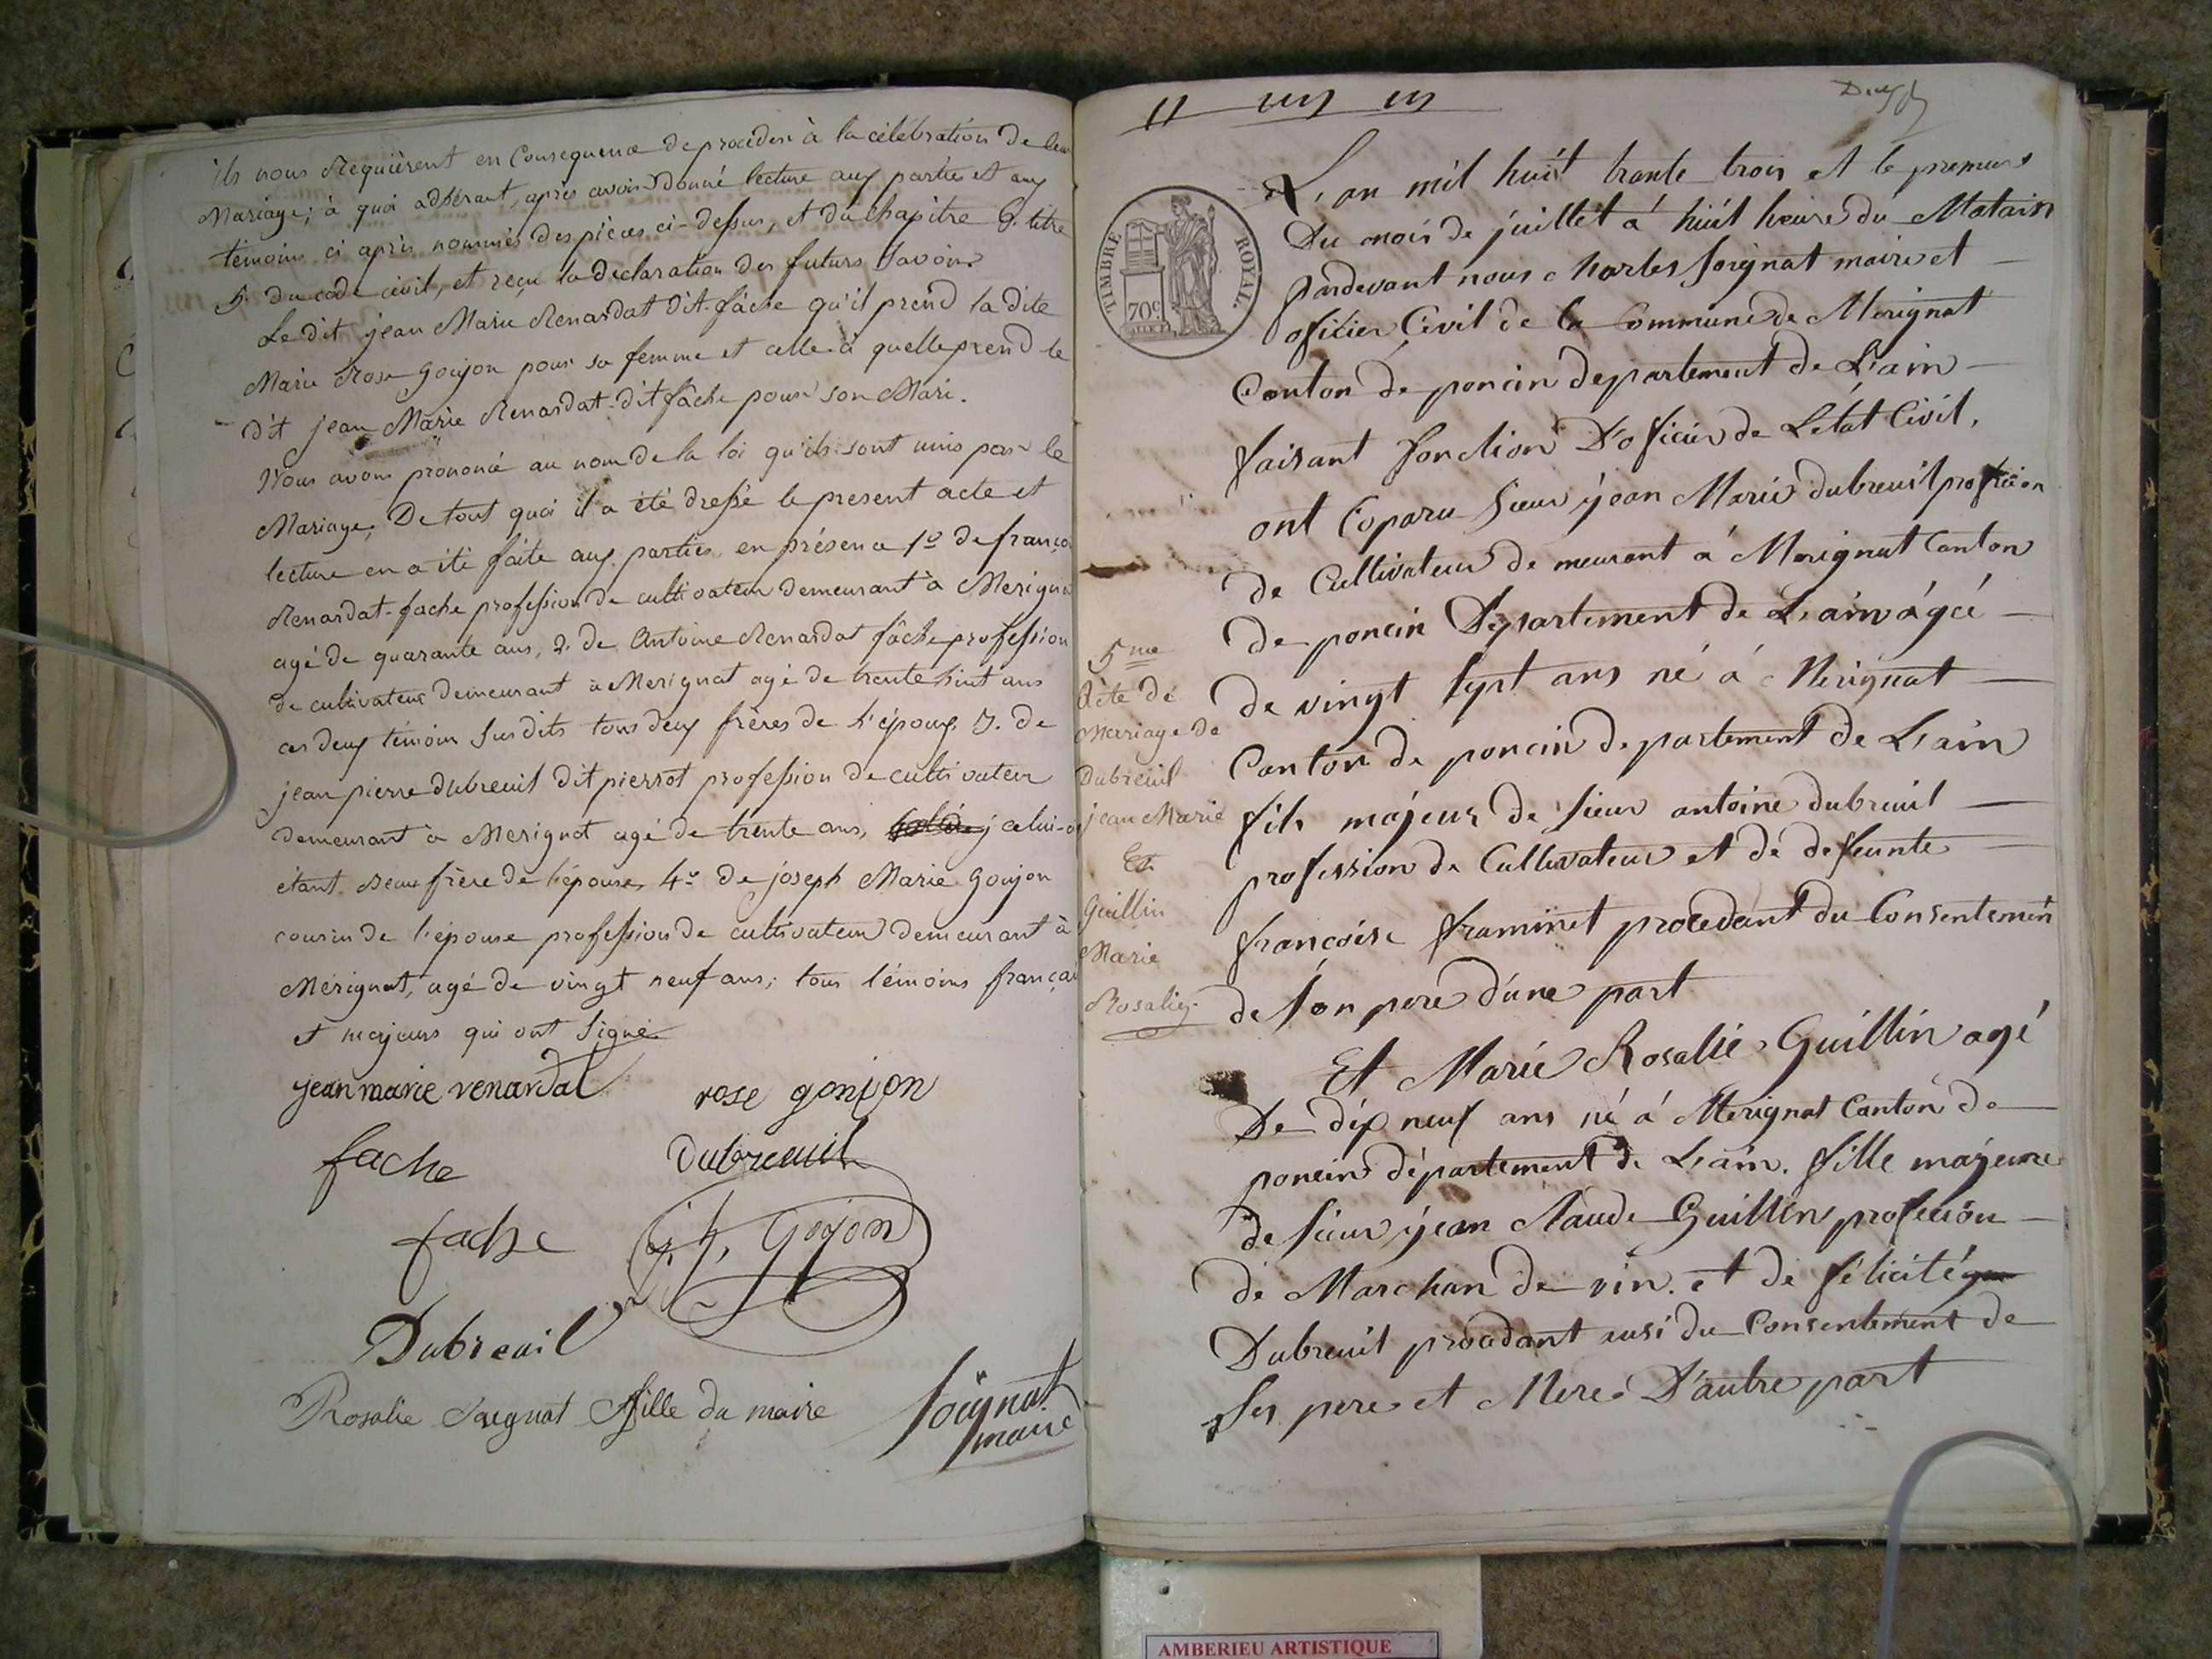 ils nous Requièrent en Consequence de procéder à la célébration de leur
Mariage; à quoi adhérant, après avoir donné lecture aux parties et aux
témoins ci après nommés des pièces ci-dessus, et du chapitre 6. titre
5 du code civil, et reçu la declaration des futurs Savoir.
Le dit jean Marie Renardat dit-fâche qu'il prend la dite
Marie Rose Goujon pour sa femme et celle-ci quelle prend le
dit jean Marie Renardat-dit fâche pour son Mari.
Nous avons prononcé au nom de la loi qu'ils sont unis par le
Mariage, De tout quoi il a été dressé le present acte et
lecture en a été faite aux parties en présence 1º de françois
Renardat-fache profession de cultivateur demeurant à Merignat
agé de quarante ans, 2. de Antoine Renardat fâche profession
de cultivateur demeurant à Merignat agé de trente huit ans
ces deux témoins Susdits tous deux frères de l'époux 3. de
jean pierre dubreuil dit pierrot profession de cultivateur
demeurant à Merignat agé de trente ans, celui-ci
étant Beau frère de l'épouse, 4º de joseph Marie Goujon
cousin de l'épouse profession de cultivateur demeurant à
Mérignat, agé de vingt neuf ans; tous témoins français
et majeurs qui ont Signé
jean marie renardat
rose gonjon
fache
dubreuil
fache
j. h. Goujon
Dubreuil
Rosalie Soignat fille du maire
Soignat
maire
TIMBRE ROYAL.
70c
L'an mil huit trante trois et le premier
Du mois de juillet á huit heure du Matain
pardevant nous charles Soignat maire et
oficier Civil de la Commune de Merignat
Canton de poncin departement de L'ain
faisant fonction D'oficier de L'état Civil,
ont Coparu Sieur jean Marie dubreuil profession
de Cultivateur de meurant á Merignat Canton
de poncin Departement de L'ain ágé
de vingt Sept ans né á Merignat
Canton de poncin departement de L'ain
fils majeur de Sieur antoine dubreuil
profession de Cultivateur et de defeunte
françoise framinet procedant du Consentement
de Son pere d'une part
Et Marie Rosalie Guillin agé
De dix neuf ans né á Merignat Canton de
poncin département de L'ain. fille majeure
de Sieur jean Claude Guillin profession
de Marchan de vin. et de félicité
Dubreuil procdant ausi du Consentement de
Ses pere et Mere D'autre part
5me
Acte de
Mariage de
Dubreuil
jean Marie
Et
Guillin
Marie
Rosalie
AMBERIEU ARTISTIQUE